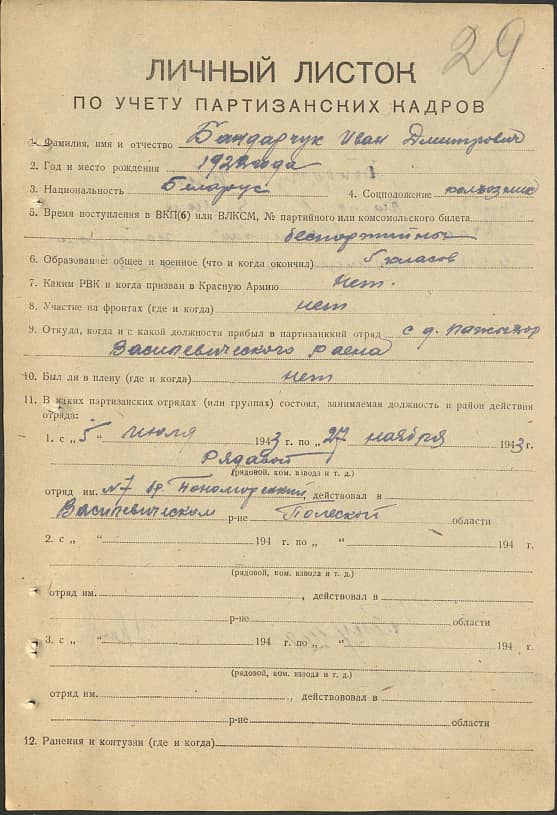 29
ЛИЧНЫЙ ЛИСТОК
ПО УЧЕТУ ПАРТИЗАНСКИХ КАДРОВ
1. Фамилия, имя и отчество Бандарчук Иван Дмитрович
2. Год и место рождения 1922 года
3. Национальность Беларус 4. Соцположение колхозник
5. Время поступления в ВКП(б) или ВЛКСМ, № партийного или комсомольского билета
беспартийный
6. Образование: общее и военное (что и когда окончил) 5 класов
7. Каким РВК и когда призван в Красную Армию нет.
8. Участие на фронтах (где и когда) нет
9. Откуда, когда и с какой должности прибыл в партизанкий отряд с д.
Василевического раена
10. Был ли в плену (где и когда) нет
11. В каких партизанских отрядах (или группах) состоял, занимаемая должность и район действия
отряда:
1. с „5“ июля 1943 г. по „27“ ноября 1943 г.
Рядавой
(рядовой, ком. взвода и т. д.)
отряд им. №7 бр. Пономоренки, действовал в
Василевическом р-не Полеской области
2. с „ “ 194 г. по „ “ 194 г.
(рядовой, ком. взвода и т. д.)
отряд им. , действовал в
р-не области
3. с „ “ 194 г. по „ “ 194 г.
(рядовой, ком. взвода и т. д.)
отряд им. , действововал в
р-не области
12. Ранения и контузии (где и когда)